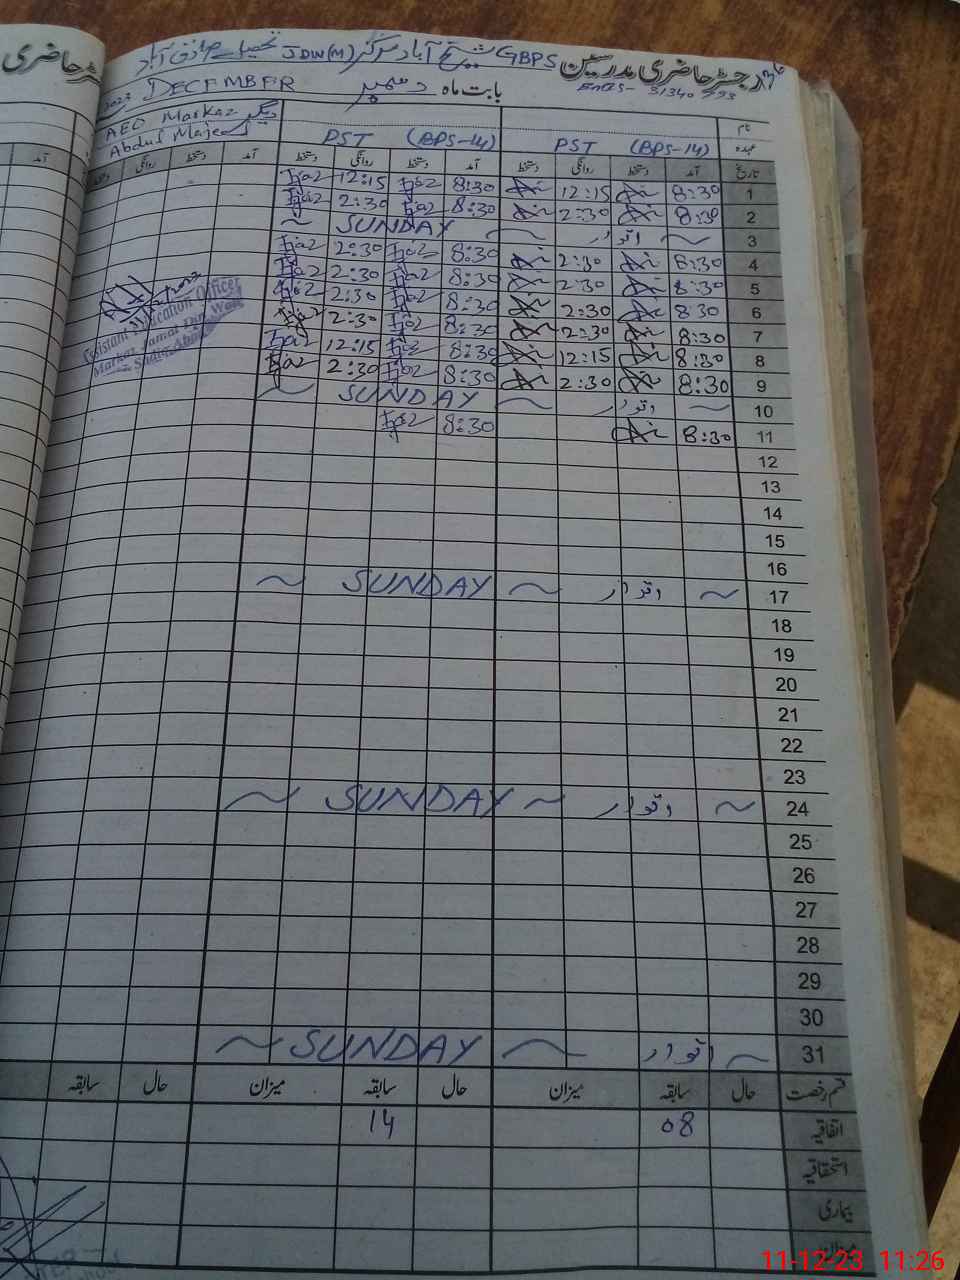 رجسٹر حاضری مدرسین GBPS شیخ آباد مرکز JDW(M) تحصیل صادق آباد
EMIS- 31340
بابت ماہ دسمبر DECEMBER 2023
نام
AEO Markaz
Abdul Majeed
عہدہ PST (BPS-14) PST (BPS-14)
تاریخ آمد دستخط روانگی دستخط آمد دستخط روانگی دستخط آمد دستخط روانگی
1 8:30 12:15 8:30 12:15
2 8:30 2:30 8:30 2:30
3 اتوار SUNDAY
4 8:30 2:30 8:30 2:30
5 8:30 2:30 8:30 2:30
6 8:30 2:30 8:30 2:30
7 8:30 2:30 8:30 2:30
8 8:30 12:15 8:30 12:15
9 8:30 2:30 8:30 2:30
10 اتوار SUNDAY
11 8:30 8:30
12
13
14
15
16
17 اتوار SUNDAY
18
19
20
21
22
23
24 اتوار SUNDAY
25
26
27
28
29
30
31 اتوار SUNDAY
قسم رخصت حال سابقہ میزان حال سابقہ میزان حال سابقہ
اتفاقیہ 08 14
استحقاقیہ
بیماری
Assistant Education Officer
Markaz Jamal Din Wali
Sadiq Abad
11-12-23 11:26